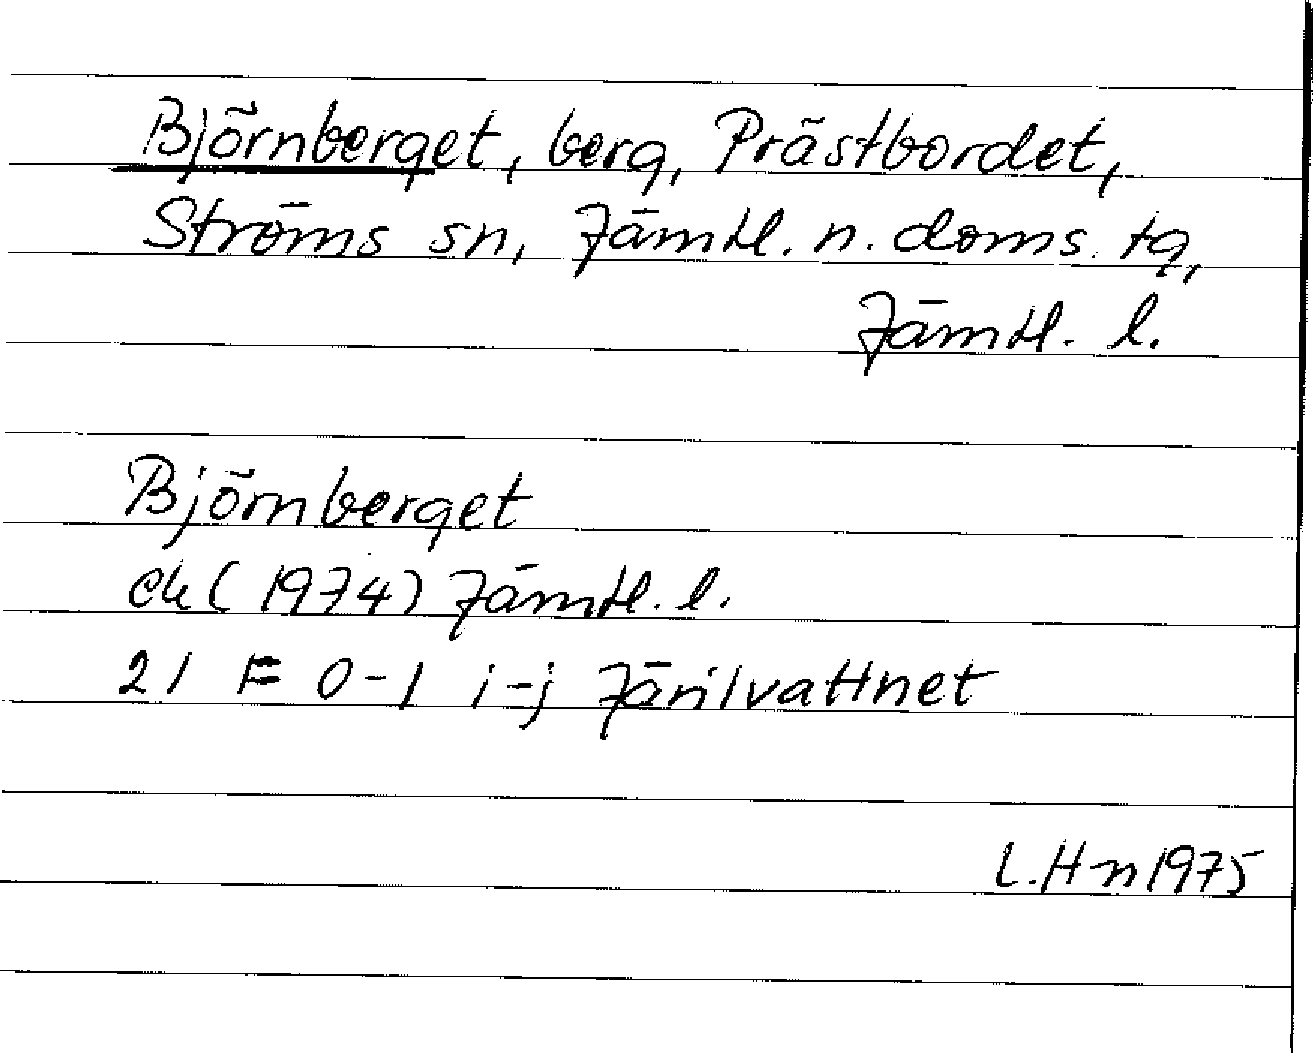 Björnberget, berg, Prästbordet,
Ströms sn, Jämtl. n. doms. tg,
Jämtl. l.
Björnberget
ek (1974) Jämtl. l.
21 F 0-1 i-j Järilvattnet
L.H-n 1975